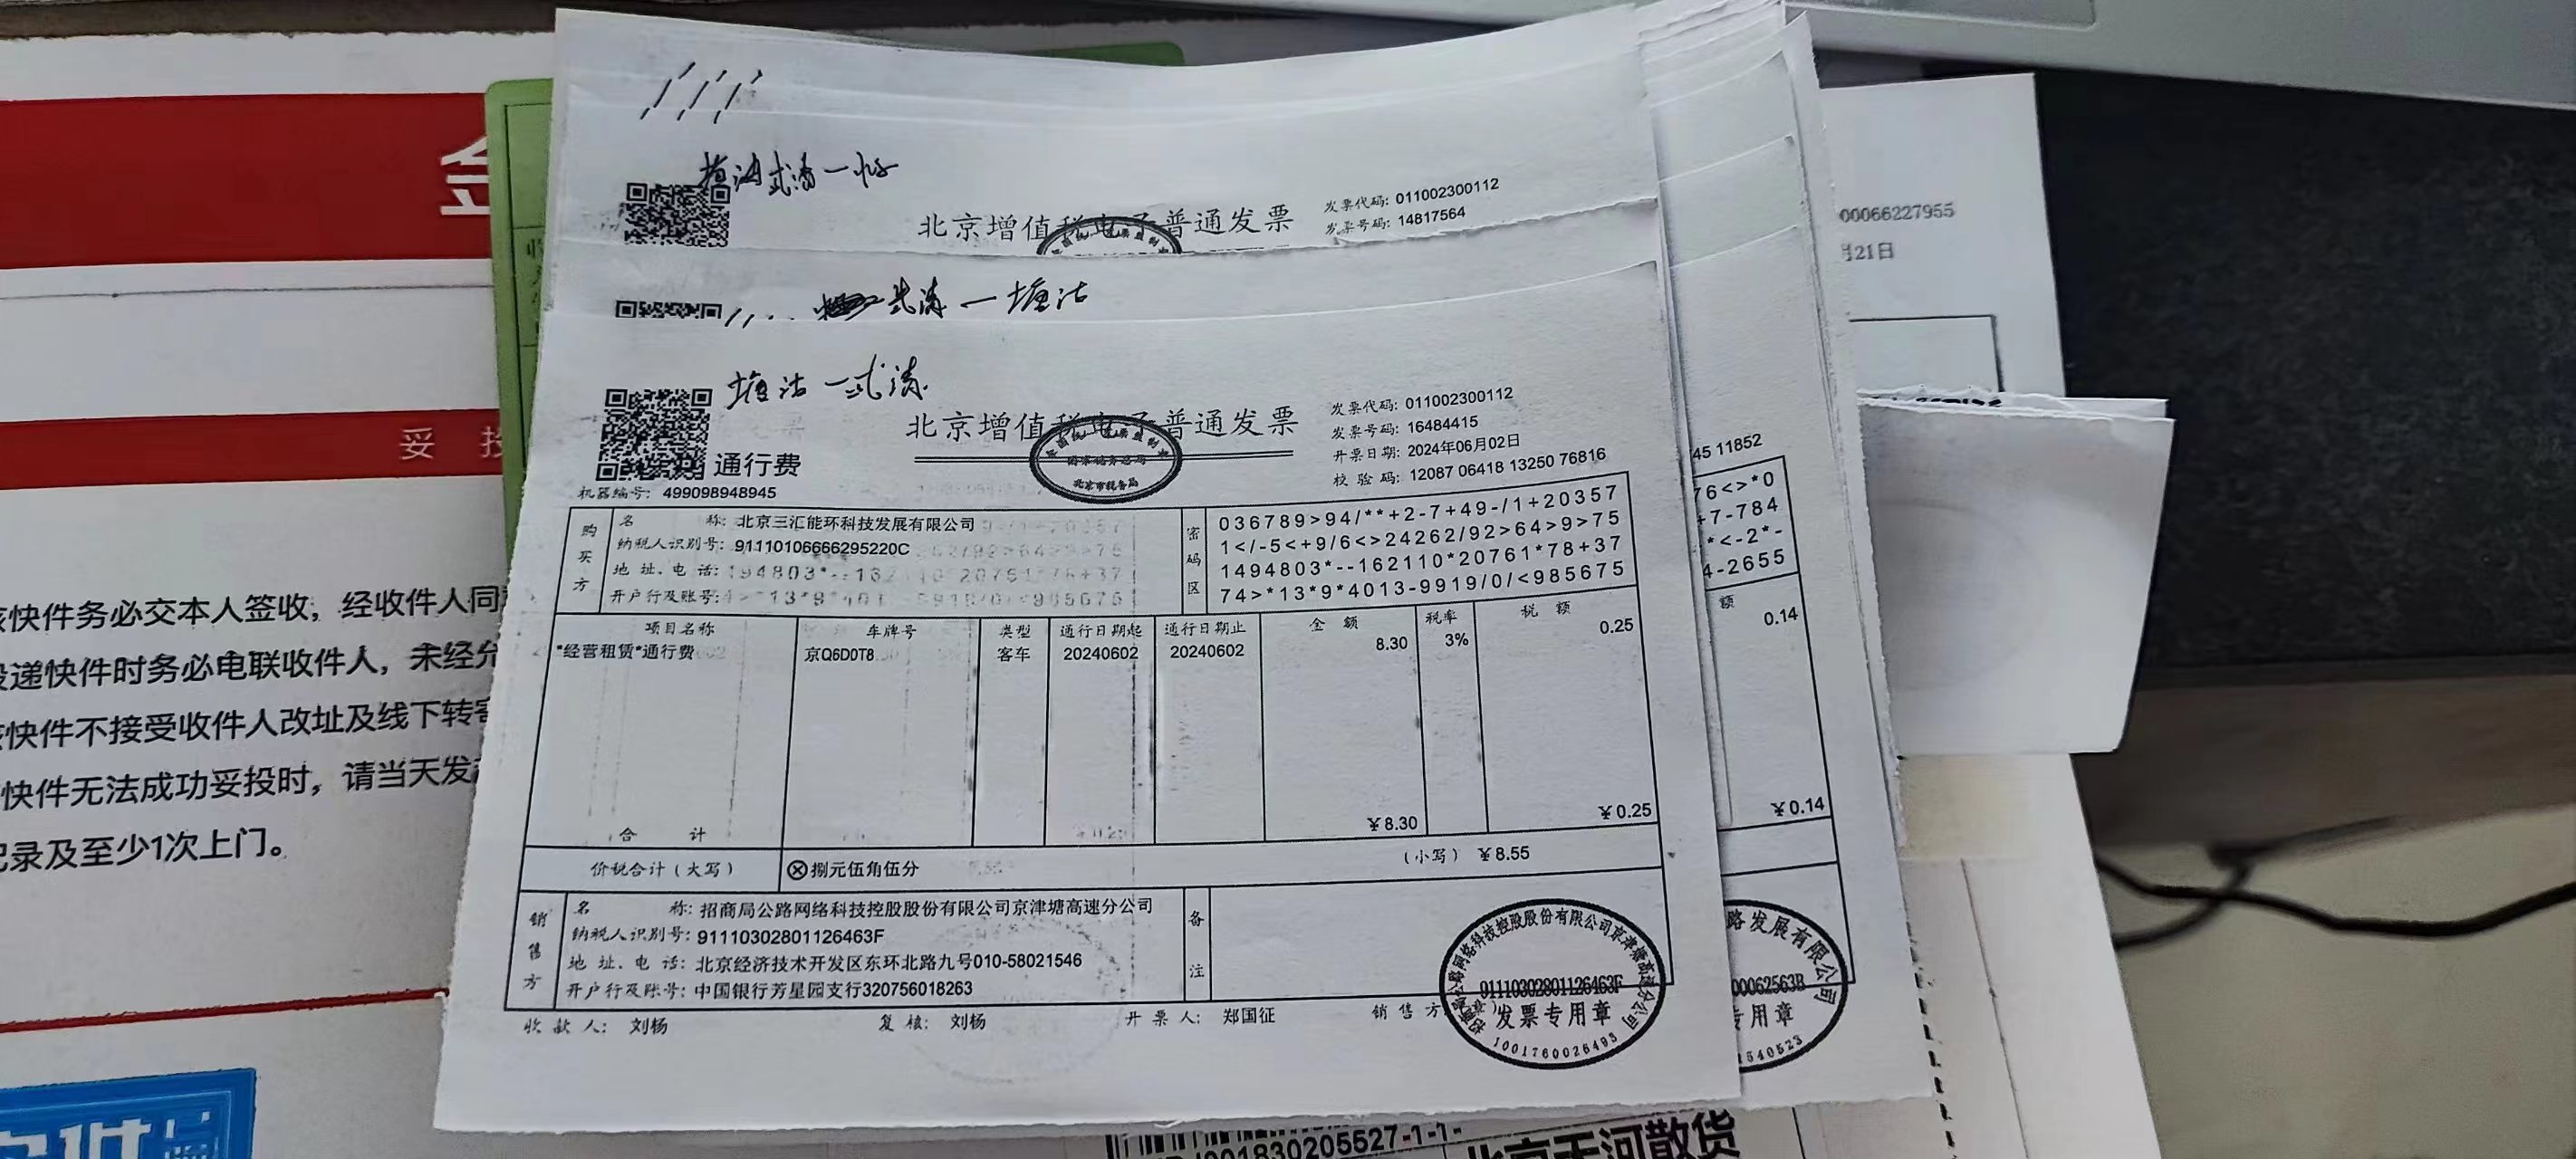 北京增值税电子普通发票
发票代码: 011002300112
发票号码: 14817564
武清一塘沽
塘沽一武清
北京增值税电子普通发票
国家税务总局
北京市税务局
通行费
发票代码: 011002300112
发票号码: 16484415
开票日期: 2024年06月02日
校 验 码: 12087 06418 13250 76816
机器编号: 499098948945
购买方
名 称: 北京三汇能环科技发展有限公司
纳税人识别号: 91110106666295220C
地 址、电 话:
开户行及账号:
密码区
036789>94/**+2-7+49-/1+20357
1</-5<+9/6<>24262/92>64>9>75
1494803*--162110*20761*78+37
74>*13*9*4013-9919/0/<985675
项目名称 车牌号 类型 通行日期起 通行日期止 金 额 税率 税 额
*经营租赁*通行费 京Q6D0T8 客车 20240602 20240602 8.30 3% 0.25
合 计 ¥8.30 ¥0.25
价税合计（大写） ⊗捌元伍角伍分 （小写） ¥8.55
销售方
名 称: 招商局公路网络科技控股股份有限公司京津塘高速分公司
纳税人识别号: 91110302801126463F
地 址、电 话: 北京经济技术开发区东环北路九号010-58021546
开户行及账号: 中国银行芳星园支行320756018263
备注
收 款 人: 刘杨 复 核: 刘杨 开 票 人: 郑国征 销 售 方
招商局公路网络科技控股股份有限公司京津塘高速分公司
91110302801126463F
发票专用章
1001760026493
00066227955
月21日
45 11852
76<>*0
+7-784
*<-2*-
4-2655
额
0.14
¥0.14
路发展有限公司
00062563B
专用章
1540523
金
妥 投
快件务必交本人签收，经收件人同
递快件时务必电联收件人，未经允
快件不接受收件人改址及线下转寄
快件无法成功妥投时，请当天发
录及至少1次上门。
001830205527-1-1-
北京天河散货